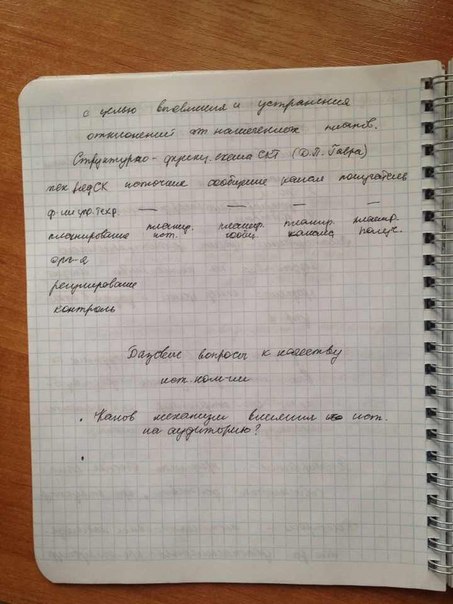 с целью выявления и устранения
отклонений от намеченных планов.
Структурно-функц. схема СКТ (Д.П. Гавра)
источник сообщение канал получатель
планирование планир. ист. планир. сообщ. планир. канала планир. получ.
орг-я
регулирование
контроль
Базовые вопросы к качеству
ист. ком-ии
. Каков механизм влияния ист.
на аудиторию?
.